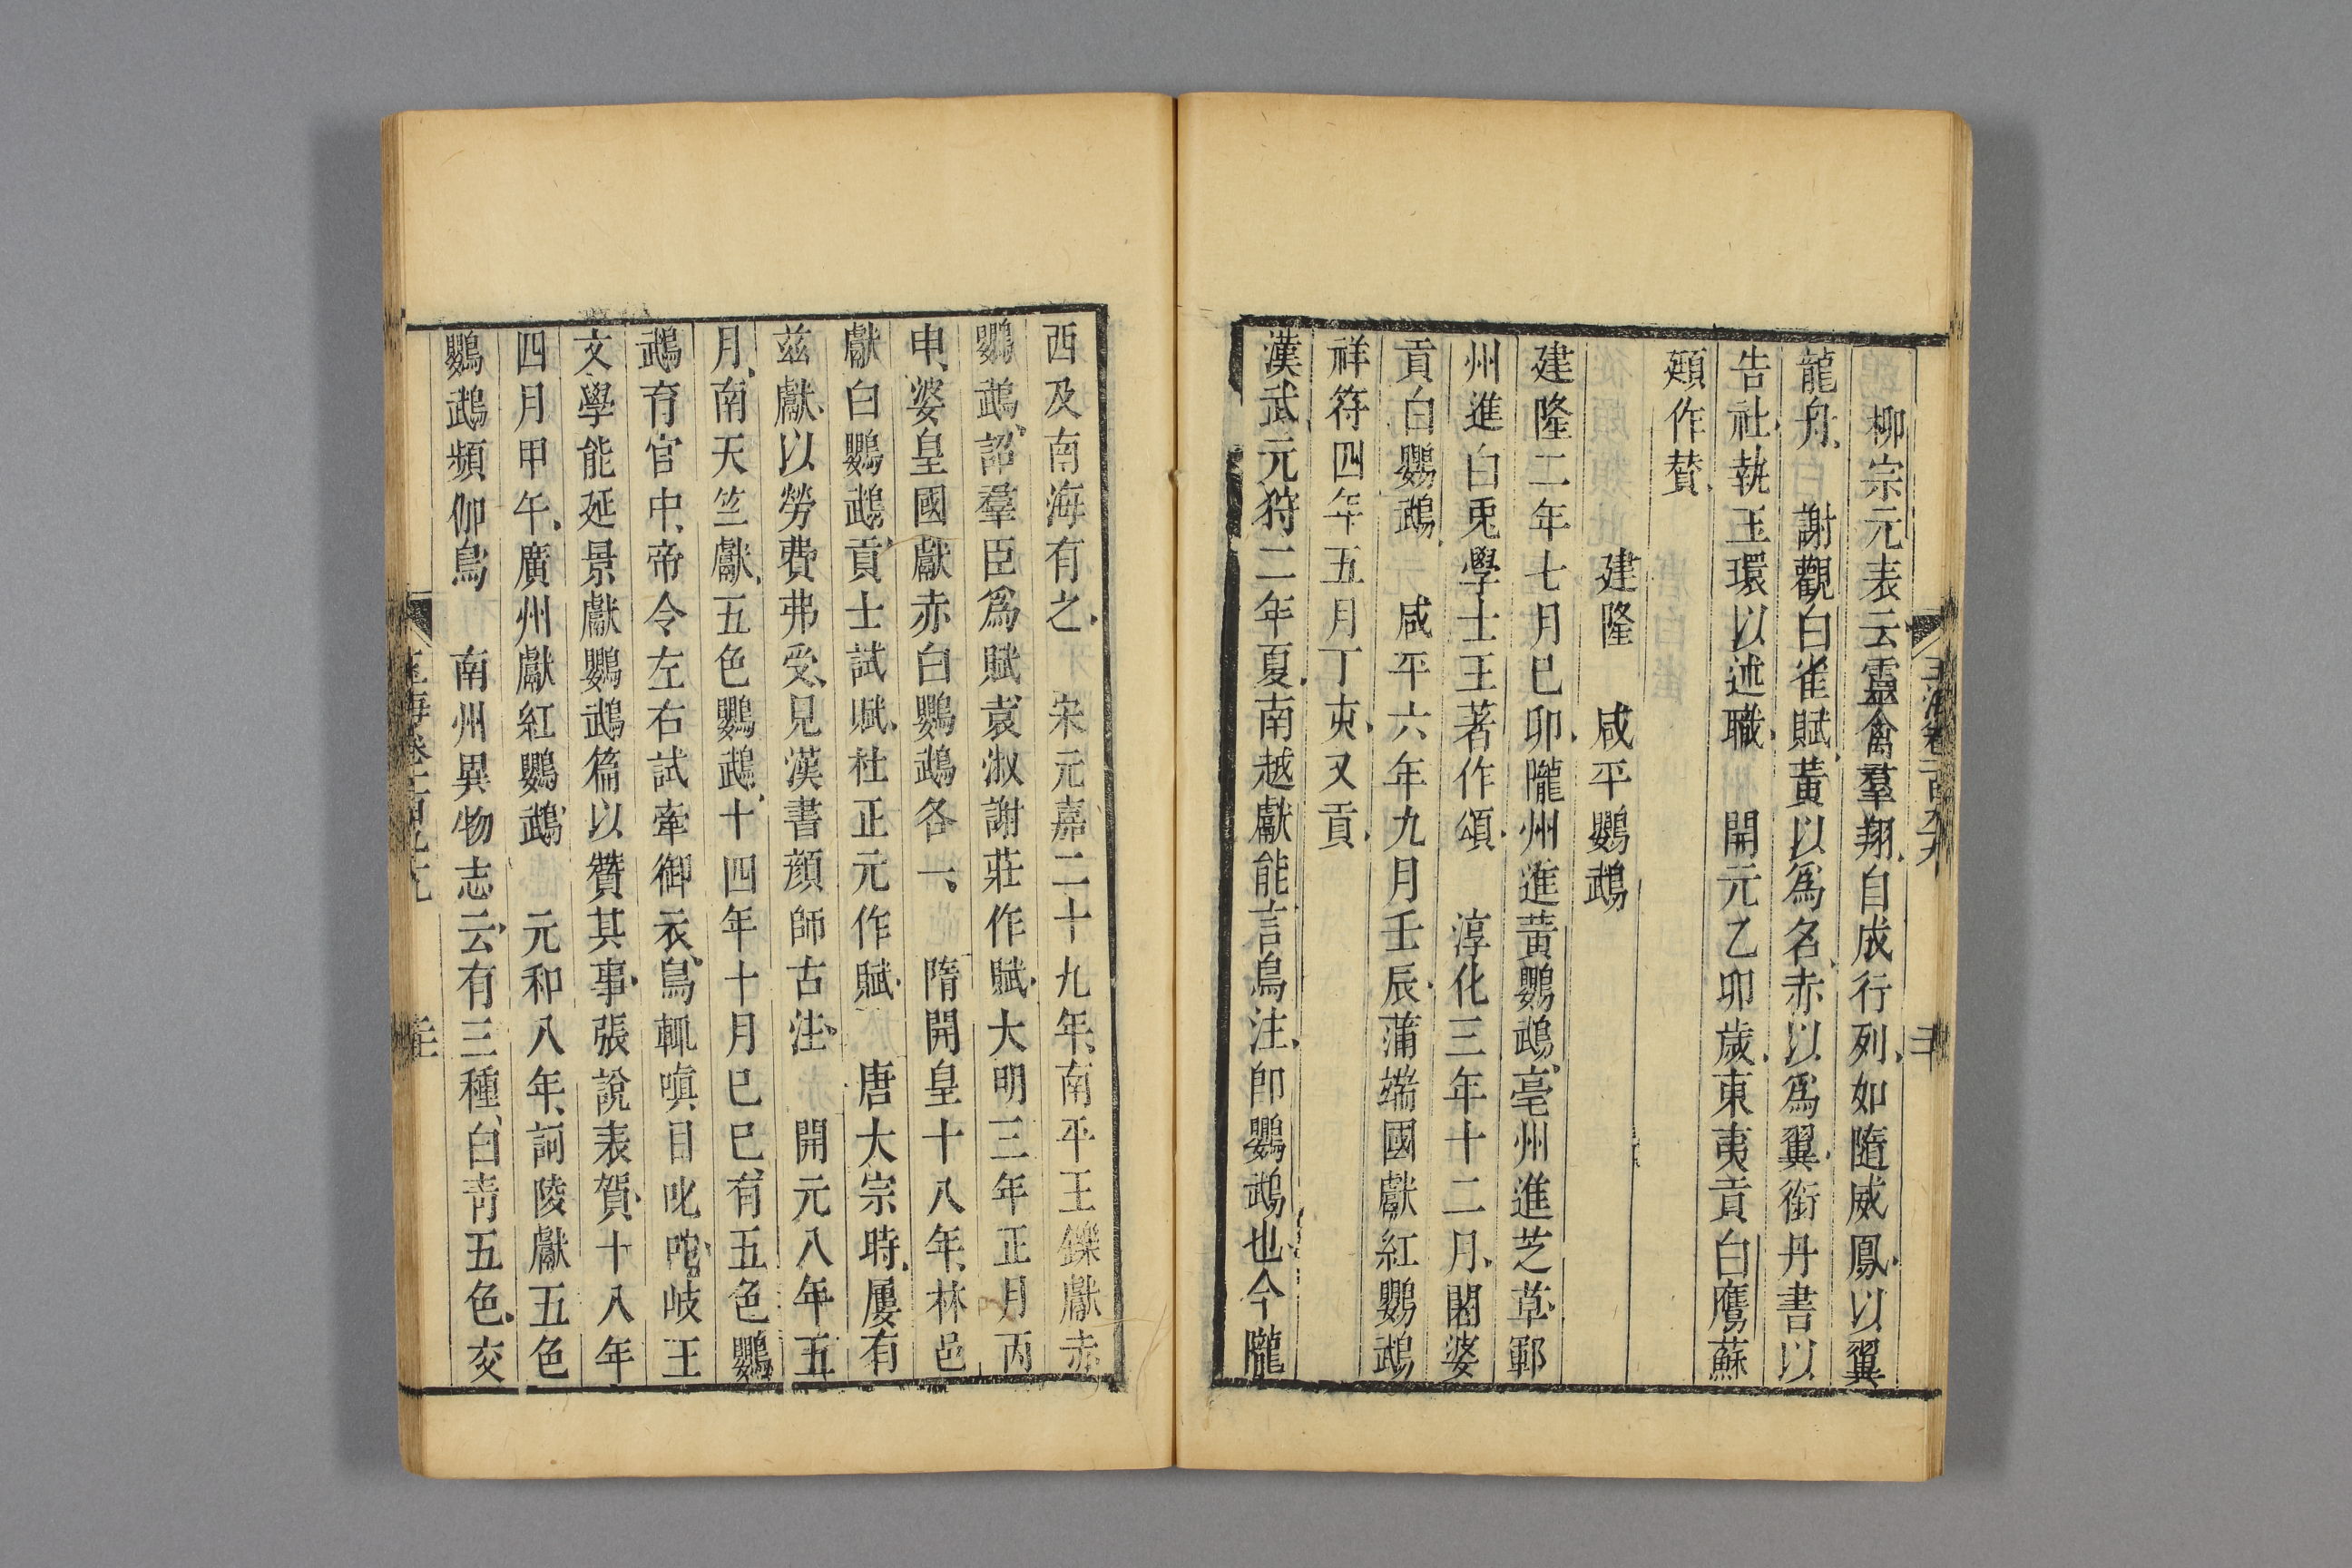 柳宗元表云靈禽羣翔自成行列如隨威鳳以翼
龍舟 謝觀白雀賦黃以爲名赤以爲翼銜丹書以
告社執玉環以述職 開元乙卯歲東夷貢白鷹蘇
頲作贊
建隆 咸平鸚鵡
建隆二年七月巳卯隴州進黃鸚鵡亳州進芝草鄆
州進白兎學士王著作頌 淳化三年十二月闍婆
貢白鸚鵡 咸平六年九月壬辰蒲端國獻紅鸚鵡
祥符四年五月丁亥又貢
漢武元狩二年夏南越獻能言鳥注卽鸚鵡也今隴
西及南海有之 宋元嘉二十九年南平王鑠獻赤
鸚鵡詔羣臣爲賦袁淑謝莊作賦大明三年正月丙
申婆皇國獻赤白鸚鵡各一 隋開皇十八年林邑
獻白鸚鵡貢士試賦杜正元作賦 唐太宗時屢有
茲獻以勞費弗受見漢書顔師古注 開元八年五
月南天竺獻五色鸚鵡十四年十月巳巳有五色鸚
鵡育官中帝令左右試牽御衣鳥輒嗔目叱咤岐王
文學能延景獻鸚鵡篇以贊其事張說表賀十八年
四月甲午廣州獻紅鸚鵡 元和八年訶陵獻五色
鸚鵡頻伽鳥 南州異物志云有三種白青五色交